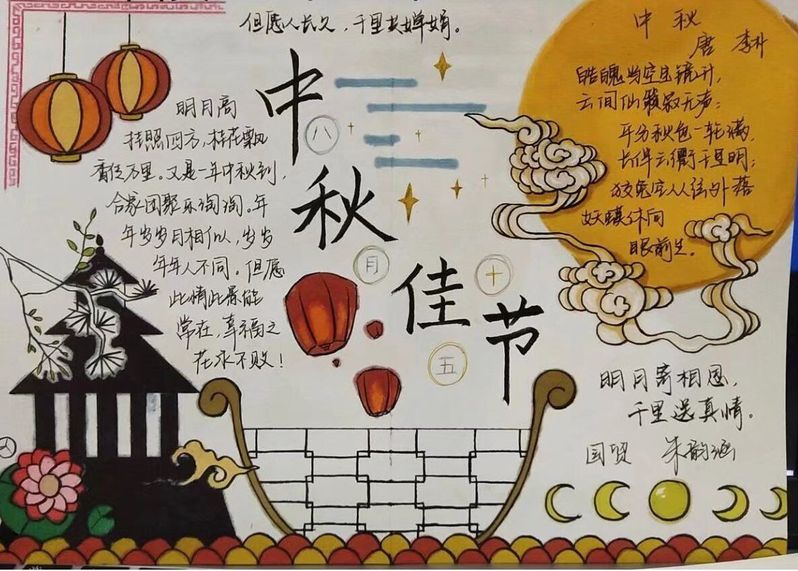 但愿人长久，千里共婵娟。
中秋佳节
八月十五
明月高
挂照四方，桂花飘
香传万里。又是一年中秋到，
合家团聚乐淘淘。年
年岁岁月相似，岁岁
年年人不同。但愿
此情此景能
常在，幸福之
花永不败！
中秋
唐 李朴
皓魄当空宝镜升，
云间仙籁寂无声；
平分秋色一轮满，
长伴云衢千里明；
狡兔空从弦外落
妖蟆休向
眼前生。
明月寄相思，
千里送真情。
国贸 朱韵涵